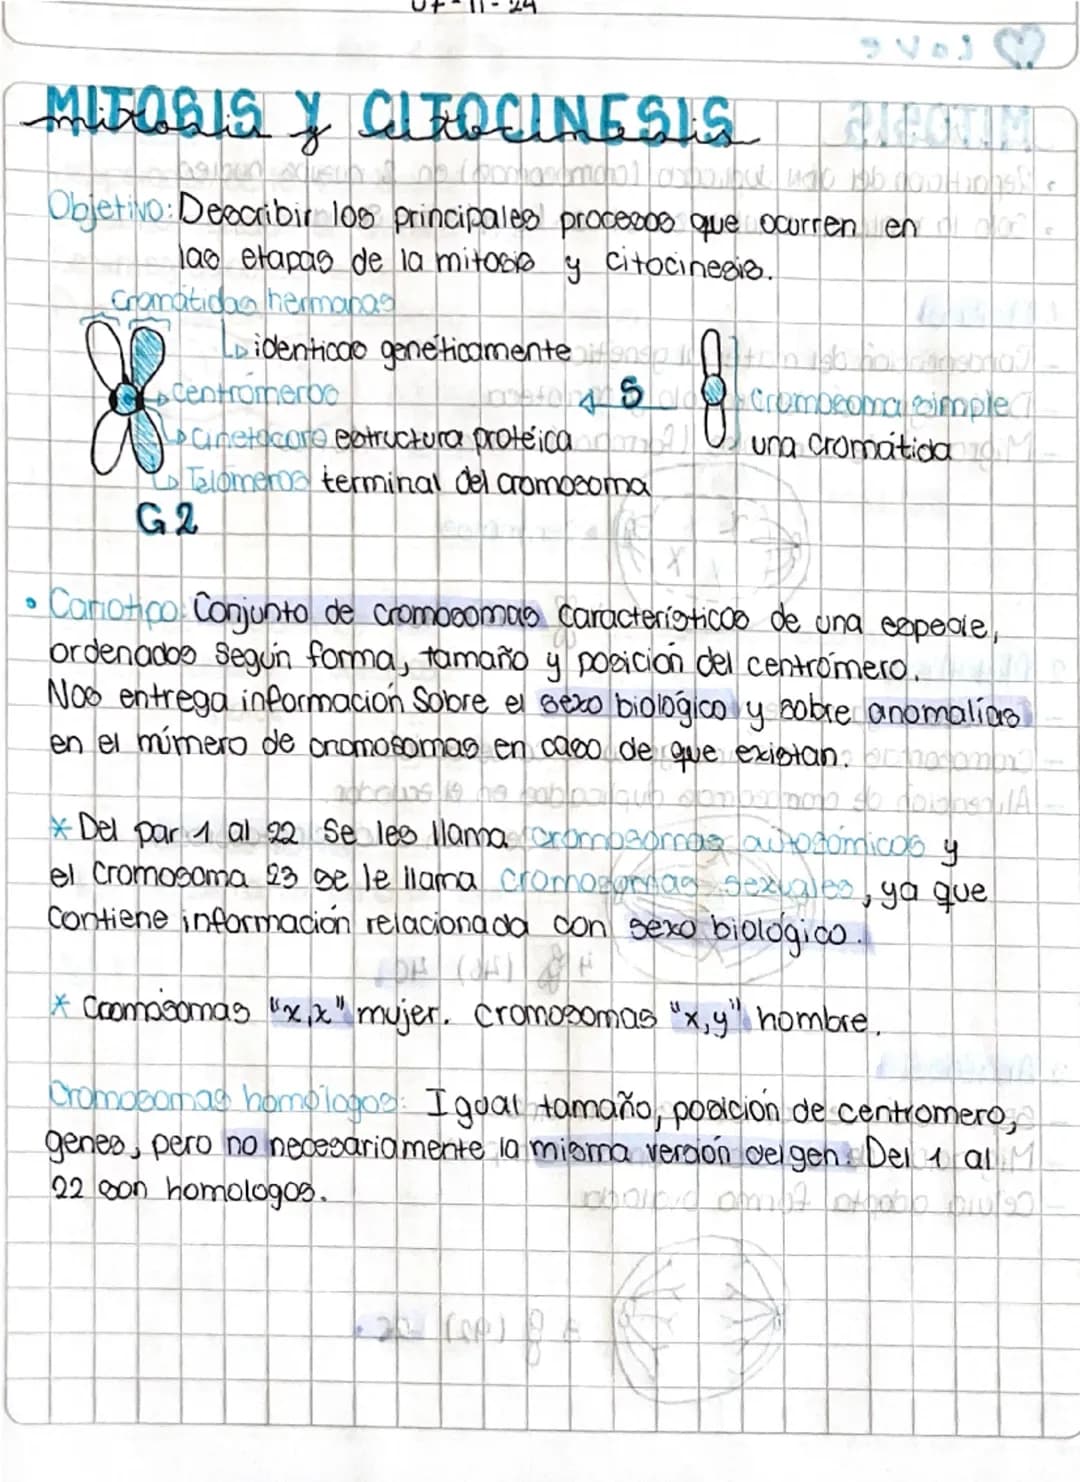 07-11-24
MITOSIS Y CITOCINESIS
mitosis y citocinesis
Objetivo: Describir los principales procesos que ocurren en
las etapas de la mitosis y citocinesis.
Cromátidas hermanas
↳ identicas genéticamente
→ Centrómeros
→ Cinetocoro estructura protéica
→ Telómeros terminal del cromosoma
G2
S
Crombsoma simple
una cromátida
• Cariotipo: Conjunto de cromosomas característicos de una especie,
ordenados según forma, tamaño y posición del centrómero.
Nos entrega información sobre el sexo biológico y sobre anomalías
en el número de cromosomas en caso de que existan.
* Del par 1 al 22 se les llama cromosomas autosómicos y
el cromosoma 23 se le llama cromosomas sexuales, ya que
contiene información relacionada con sexo biológico.
* Cromosomas "x,x" mujer. cromosomas "x,y" hombre.
Cromosomas homólogos: Igual tamaño, posición de centromero,
genes, pero no necesariamente la misma versión del gen. Del 1 al
22 son homologos.